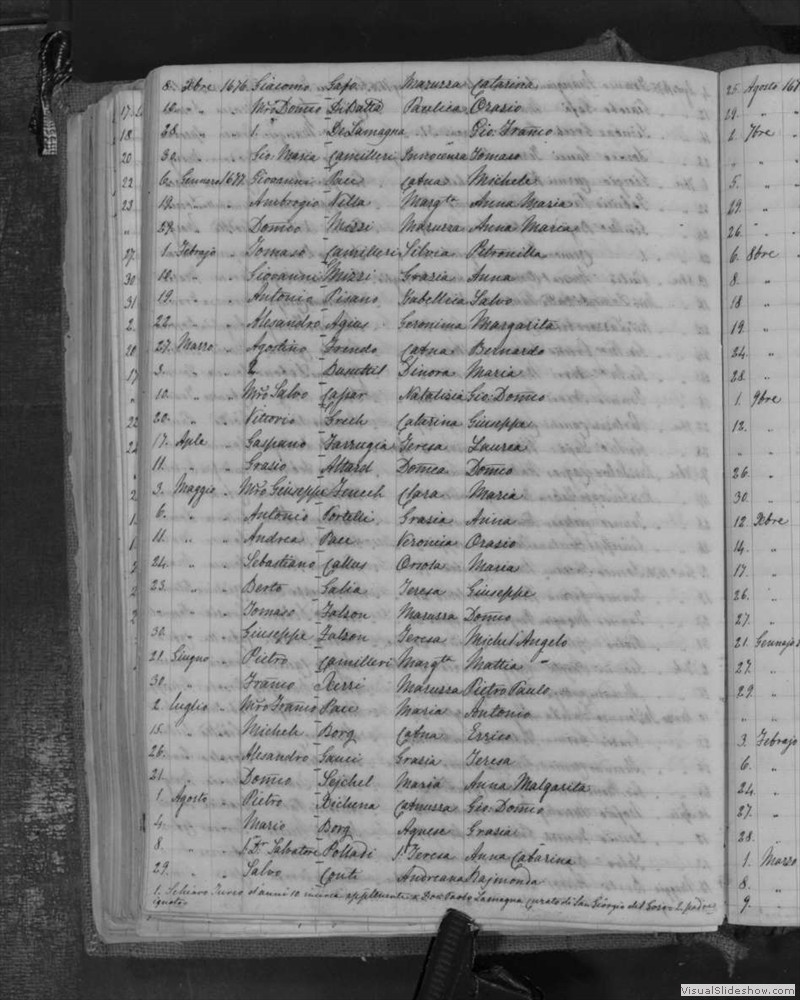 8. Xbre 1676. Giacomo Gafo Maruzza Catarina
16. " " Mro Domco Di Batta Paulica Orazio
28. " " 1. De Lamagna " " Gio: Franco
30. " " Gio: Maria Camilleri Innocenza Tomaso
6. Gennaro 1677. Giovanni Pace Catna Michele
12. " " Ambrogio Vella Margta Anna Maria
29. " " Domco Mizzi Maruzza Anna Maria
1. Febrajo " Tomaso Camilleri Silvia Petronilla
12. " " Giovanni Mizzi Grazia Anna
19. " " Antonio Pisano Isabellica Salvo
22. " " Alesandro Agius Geronima Margarita
27. Marzo " Agostino Frendo Catna Bernardo
3. " " 2 Busuttil Elnora Maria
10. " " Mro Salvo Capar Natalizia Gio: Domco
20. " " Vittorio Grech Catarina Giuseppa
17. Aple " Gaspano Farrugia Teresa Laurea
11. " " Grazio Attard Domca Domco
3. Maggio " Mro Giuseppe Zenech Clara Maria
6. " " Antonio Portelli Grazia Anna
11. " " Andrea Pace Veronica Orazio
24. " " Sebastiano Callus Orsola Maria
23. " " Berto Galia Teresa Giuseppe
" " " Tomaso Falzon Maruzza Domco
30. " " Giuseppe Falzon Teresa Michel Angelo
21. Giugno " Pietro Camilleri Margta Mattia
30. " " Franco Xerri Maruzza Pietro Paulo
2. Luglio " Mro Franco Pace Maria Antonio
15. " " Michele Borg Catna Errico
26. " " Alesandro Gauci Grazia Teresa
21. " " Domco Seychel Maria Anna Malgarita
1. Agosto " Pietro Dichena Catnuzza Gio: Domco
4. " " Mario Borg Agnese Grazia
8. " " Salvatore Polladi Teresa Anna Catarina
29. " " Salvo Conti Andreana Rajmonda
1. Schiavo Turco d'anni 10 Don Paolo Lamagna Curato di San Giorgio del Gozo 2. padre
ignoto
17.
18
20
22
23
"
27
30
31
2.
20
17
"
22
22
2
1
1
2
2
2
25. Agosto 167
29. "
2. 7bre
" "
5. "
29. "
26. "
6. 8bre
8. "
18 "
19. "
24. "
28. "
1. 9bre
12. "
26. "
30. "
12. Xbre
14. "
17. "
26. "
27. "
21. Gennajo
27. "
29. "
" "
3. Febrajo
6. "
24. "
27. "
28. "
1. Marzo
8. "
9. "
VisualSlideshow.com